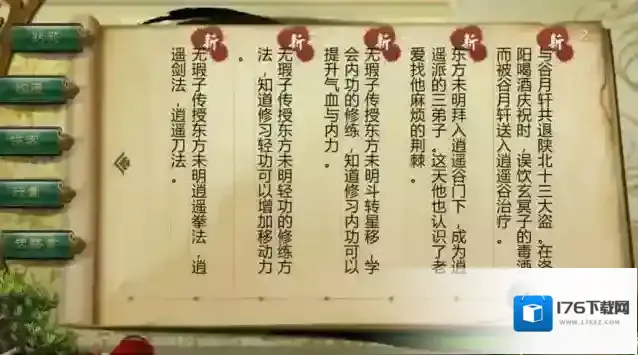 新
与谷月轩共退陕北十三大盗。在洛
阳喝酒庆祝时，误饮玄冥子的毒酒
而被谷月轩送入逍遥谷治疗。
新
东方未明拜入逍遥谷门下，成为逍
遥派的三弟子。这天他也认识了老
爱找他麻烦的荆棘。
新
无瑕子传授东方未明斗转星移，学
会内功的修练，知道修习内功可以
提升气血与内力。
新
无瑕子传授东方未明轻功的修练方
法，知道修习轻功可以增加移动力
。
新
无瑕子传授东方未明逍遥拳法，逍
遥剑法，逍遥刀法。
2
176下载网
WWW.176XZ.COM